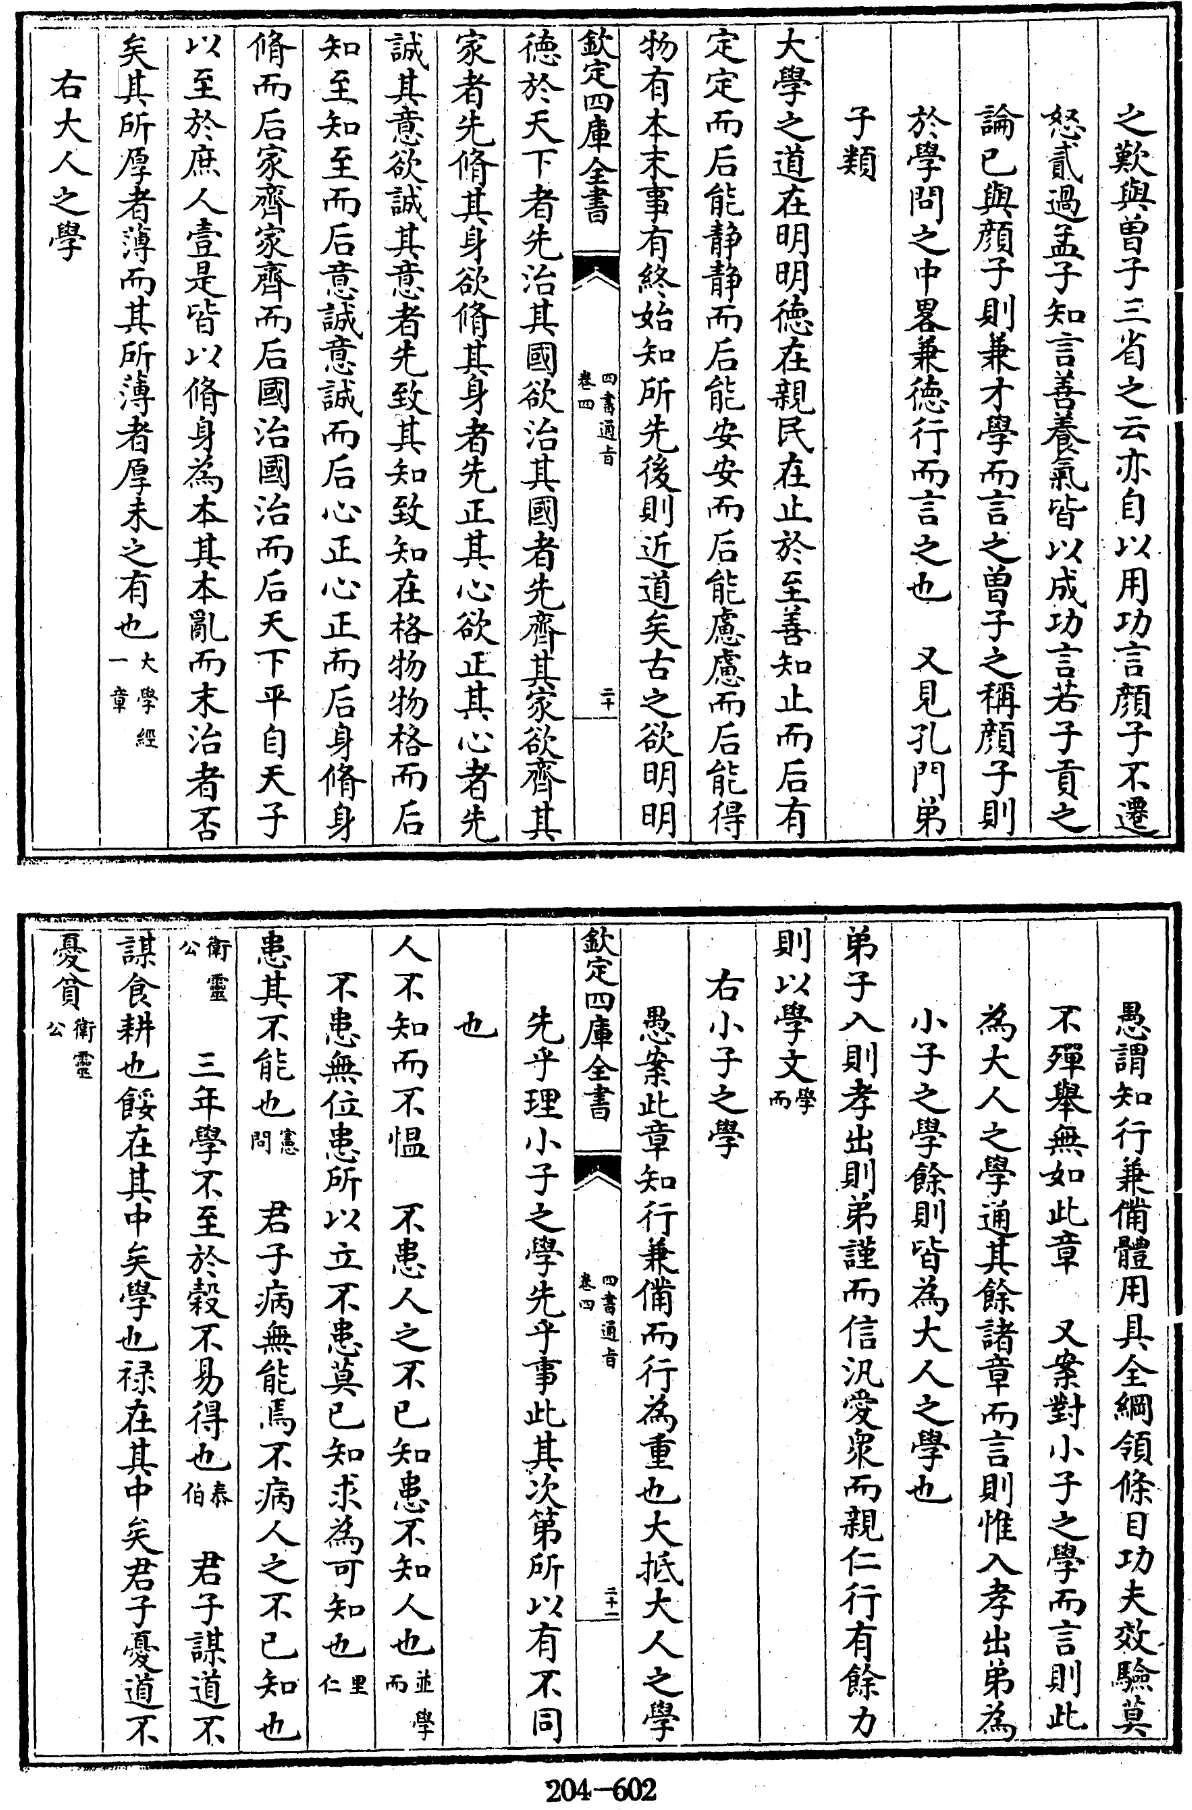 之歎與曽子三省之云亦自以用功言顔子不遷
怒貳過孟子知言善養氣皆以成功言若子貢之
論已與顔子則兼才學而言之曽子之稱顔子則
於學問之中畧兼徳行而言之也　又見孔門弟
子類
大學之道在明明徳在親民在止於至善知止而后有
定定而后能静静而后能安安而后能慮慮而后能得
物有本末事有終始知所先後則近道矣古之欲明明
欽定四庫全書
四書通旨
卷四
二十
徳於天下者先治其國欲治其國者先齊其家欲齊其
家者先脩其身欲脩其身者先正其心欲正其心者先
誠其意欲誠其意者先致其知致知在格物物格而后
知至知至而后意誠意誠而后心正心正而后身脩身
脩而后家齊家齊而后國治國治而后天下平自天子
以至於庶人壹是皆以脩身為本其本亂而末治者否
矣其所厚者薄而其所薄者厚未之有也大學經一章
右大人之學
愚謂知行兼備體用具全綱領條目功夫效驗莫
不殫舉無如此章　又案對小子之學而言則此
為大人之學通其餘諸章而言則惟入孝出弟為
小子之學餘則皆為大人之學也
弟子入則孝出則弟謹而信汎愛衆而親仁行有餘力
則以學文學而
右小子之學
愚案此章知行兼備而行為重也大抵大人之學
欽定四庫全書
四書通旨
卷四
二十一
先乎理小子之學先乎事此其次第所以有不同
也
人不知而不愠　不患人之不已知患不知人也並學而
不患無位患所以立不患莫已知求為可知也里仁
患其不能也憲問　君子病無能焉不病人之不已知也
衛靈公　三年學不至於穀不易得也泰伯　君子謀道不
謀食耕也餒在其中矣學也禄在其中矣君子憂道不
憂貧衛靈公
204-602